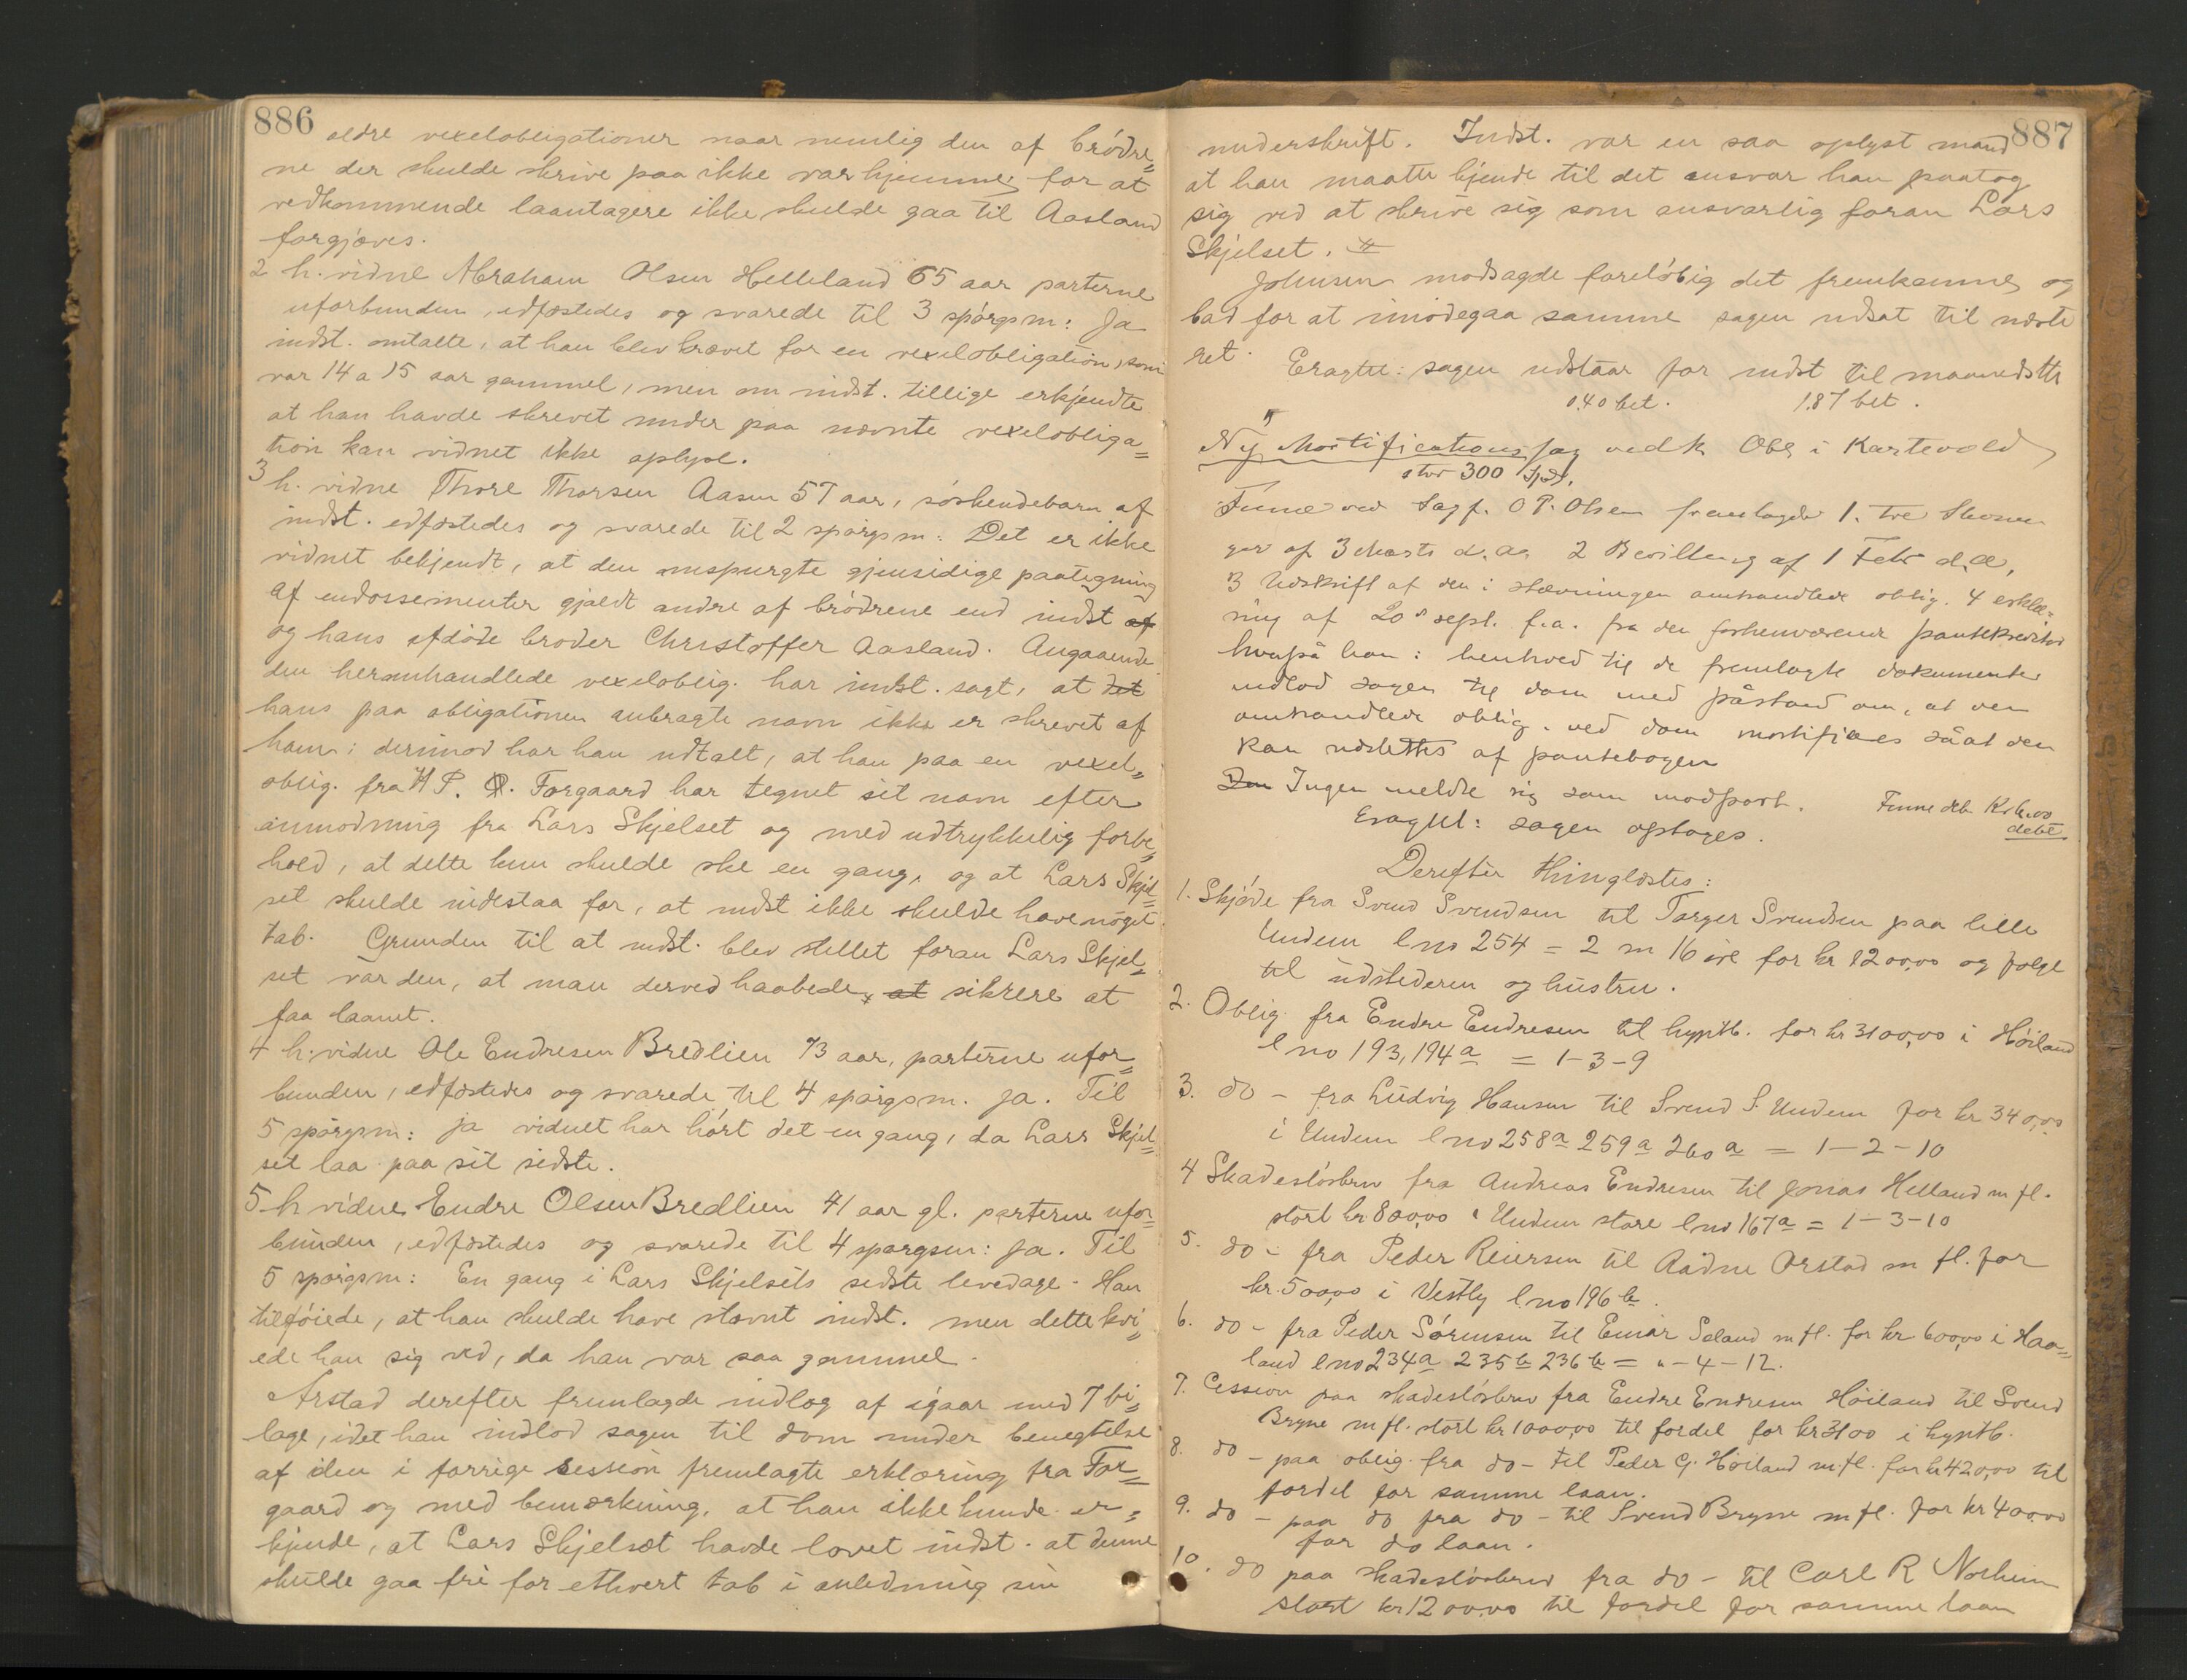 886
ældre vexelobligationer naar nemlig den af brødre„
ne der skulde skrive paa ikke var hjemme, for at
vedkommende laantagere ikke skulde gaa til Aasland
forgjæves.
2 h. vidne Abraham Olsen Helleland 65 aar parterne
uforbunden, edfæstedes og svarede til 3 spørgsm: Ja
indst. omtalte, at han blev krævet for en vexelobligation, som
var 14 a 15 aar gammel, men om indst. tillige erkjendte
at han havde skrevet under paa nævnte vexelobliga„
tion kan vidnet ikke oplyse.
3 h. vidne Thore Thorsen Aasen 57 aar, søskendebarn af
indst. edfæstedes og svarede til 2 spørgsm: Det er ikke
vidnet bekjendt, at den omspurgte gjensidige paategning
af endossementer gjældt andre af brødrene end indst af
og hans afdøde broder Christoffer Aasland. Angaaende
den heromhandlede vexeloblig. har indst. sagt, at det
hans paa obligationen anbragte navn ikke er skrevet af
ham: derimod har han udtalt, at han paa en vexel„
oblig. fra H P. Forgaard har tegnet sit navn efter
anmodning fra Lars Skjelset og med udtrykkelig forbe„
hold, at dette kun skulde ske en gang, og at Lars Skjel„
set skulde indestaa for, at indst ikke skulde have noget
tab. Grunden til at indst. blev stillet foran Lars Skjel„
set var den, at man derved haabede at sikrere at
faa laanet.
4 h. vidne Ole Endresen Bredlien 73 aar, parterne ufor„
bunden, edfæstedes og svarede til 4 spørgsm. Ja. Til
5 spørgsm: ja vidnet har hørt det en gang, da Lars Skjel„
set laa paa sit sidste.
5 h vidne Endre Olsen Bredlien 41 aar gl. parterne ufor„
bunden, edfæstedes og svarede til 4 spørgsm: Ja. Til
5 spørgsm: En gang i Lars Skjelsets sidste levedage. Han
tilføiede, at han skulde have stævnt indst. men dette kvi„
ede han sig ved, da han var saa gammel.
Årstad derefter fremlagde indlæg af igaar med 7 bi„
lage, idet han indlod sagen til dom under benegtelse
af den i forrige session fremlagte erklæring fra For„
gaard og med bemærkning, at han ikke kunde er„
kjende, at Lars Skjelsæt havde lovet indst. at denne
skulde gaa fri for ethvert tab i anledning sin
887
underskrift. Indst. var en saa oplyst mand
at han maatte kjende til det ansvar han paatog
sig ved at skrive sig som ansvarlig foran Lars
Skjelset.
Johnsen modsagde foreløbig det fremkomne og
bad for at imødegaa samme sagen udsat til næste
ret.
Eragtet: sagen udstaar for indst til maanedsth
0.40 bet. 1.87 bet.
Ny Mortifications sag vedk Obl. i Kartevold
stor 300 Spd.
Finne ved Sagf. O P. Olsen fremlagde 1.
af 3 Marts d. Aa 2 Bevilling af 1 Febr d. a.,
3 Udskrift af den i stævningen omhandlede oblig. 4 erklæ„
ring af 20 sept. f.a. fra den forhenværende pantekreditor
hvorpå han i henhold til de fremlagte dokumenter
indlod sagen til dom med påstand om, at den
omhandlede oblig. ved dom mortifices såat den
kan udslettes af pantebogen
Den Ingen meldte sig som modpart.
Finne deb. Kr
debt
Eragtet: sagen optoges.
Derefter thinglæstes:
1. Skjøde fra Svend Svendsen til Torger Svendsen paa lille
Undem lno 254 = 2 m 16 øre for kr 1200,00 og folge
til udstederen og hustru.
2. Oblig. fra Endre Endresen til hypthb. for kr 3100,00 i Høiland
lno 193, 194a = 1-3-9
3. do - fra Ludvig Hansen til Svend S. Undem for kr 340,00
i Undem lno 258a 259a 260a = 1-2-10
4 Skadesløsbrev fra Andreas Endresen til Jonas Helland m fl.
stort kr 800,00 i Undem store lno 167a = 1-3-10
5. do - fra Peder Reiersen til Ådne Årstad m fl. for
kr. 500,00 i Vestly lno 196b.
6. do - fra Peder Sørensen til Einar Søland m fl. for kr 600,00 i Haa„
land lno 234a 235b 236b = „-4-12.
7. Cession paa skadesløsbrev fra Endre Endresen Høiland til Svend
Bryne m fl. stort kr 1000,00 til fordel for kr 3100 i hypthb.
8. do - paa oblig. fra do - til Peder G. Høiland m fl. for kr 420,00 til
fordel for samme laan.
9. do - paa do fra do - til Svend Bryne m fl. for kr 400,00
for do laan.
10. do paa skadesløsbrev fra do - til Carl R Norheim
stort kr 1200,00 til fordel for samme laan